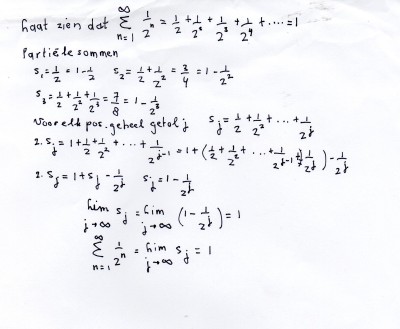 Laat zien dat ∑_{n=1}^{∞} 1/2^n = 1/2 + 1/2^2 + 1/2^3 + 1/2^4 + .... = 1
Partiële sommen
s_1 = 1/2 = 1 - 1/2   s_2 = 1/2 + 1/2^2 = 3/4 = 1 - 1/2^2
s_3 = 1/2 + 1/2^2 + 1/2^3 = 7/8 = 1 - 1/2^3
Voor elk pos. geheel getal j   s_j = 1/2 + 1/2^2 + ... + 1/2^j
2. s_j = 1 + 1/2 + 1/2^2 + ... + 1/2^{j-1} = 1 + (1/2 + 1/2^2 + ... + 1/2^{j-1} + 1/2^j) - 1/2^j
2. s_j = 1 + s_j - 1/2^j   s_j = 1 - 1/2^j
lim_{j→∞} s_j = lim_{j→∞} (1 - 1/2^j) = 1
∑_{n=1}^{∞} 1/2^n = lim_{j→∞} s_j = 1